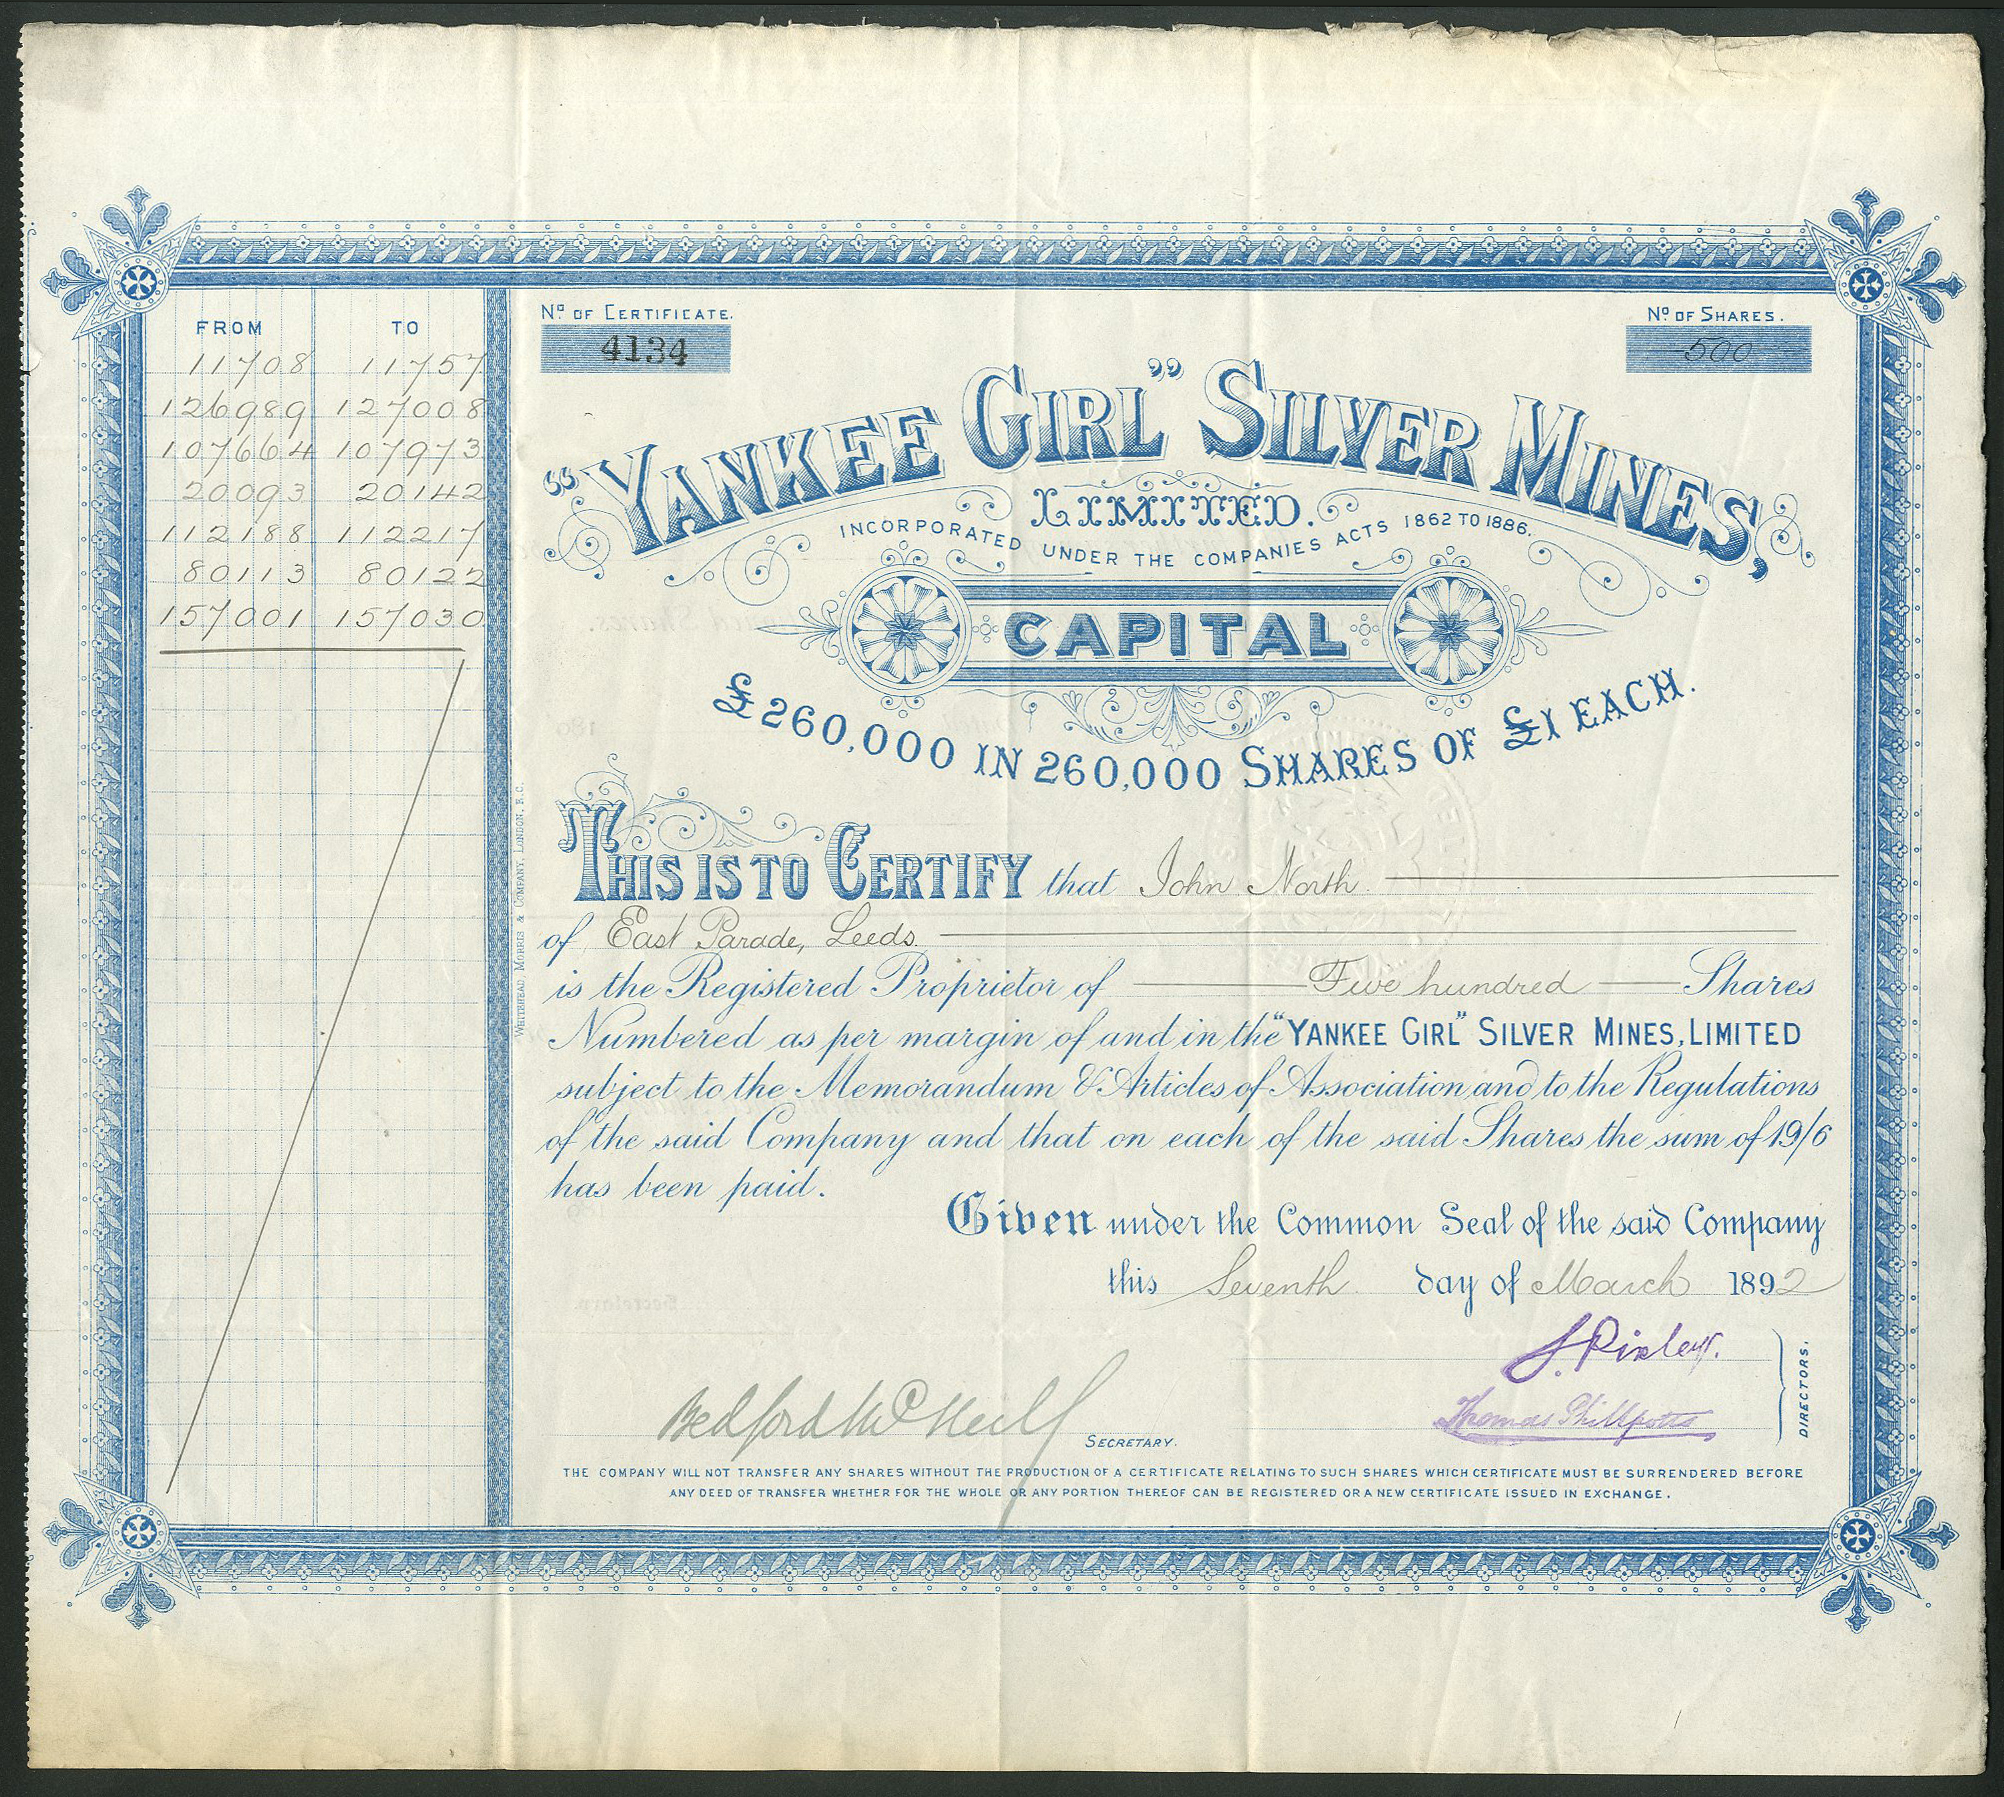 FROM TO
11708 11757
126989 127008
107664 107973
20093 20142
112188 112217
80113 80122
157001 157030
WHITEHEAD, MORRIS & COMPANY, LONDON, E.C.
No. OF CERTIFICATE.
4134
No. OF SHARES.
500
"YANKEE GIRL" SILVER MINES,
LIMITED.
INCORPORATED UNDER THE COMPANIES ACTS 1862 TO 1886.
CAPITAL
£260,000 IN 260,000 SHARES OF £1 EACH.
THIS IS TO CERTIFY that John North
of East Parade, Leeds
is the Registered Proprietor of Five hundred Shares
Numbered as per margin of and in the "YANKEE GIRL" SILVER MINES, LIMITED
subject to the Memorandum & Articles of Association and to the Regulations
of the said Company and that on each of the said Shares the sum of 19/6
has been paid.
Given under the Common Seal of the said Company
this Seventh day of March 1892
J. Pixley.
Thomas Phillpotts
DIRECTORS.
Bedford McNeill
SECRETARY.
THE COMPANY WILL NOT TRANSFER ANY SHARES WITHOUT THE PRODUCTION OF A CERTIFICATE RELATING TO SUCH SHARES WHICH CERTIFICATE MUST BE SURRENDERED BEFORE
ANY DEED OF TRANSFER WHETHER FOR THE WHOLE OR ANY PORTION THEREOF CAN BE REGISTERED OR A NEW CERTIFICATE ISSUED IN EXCHANGE.